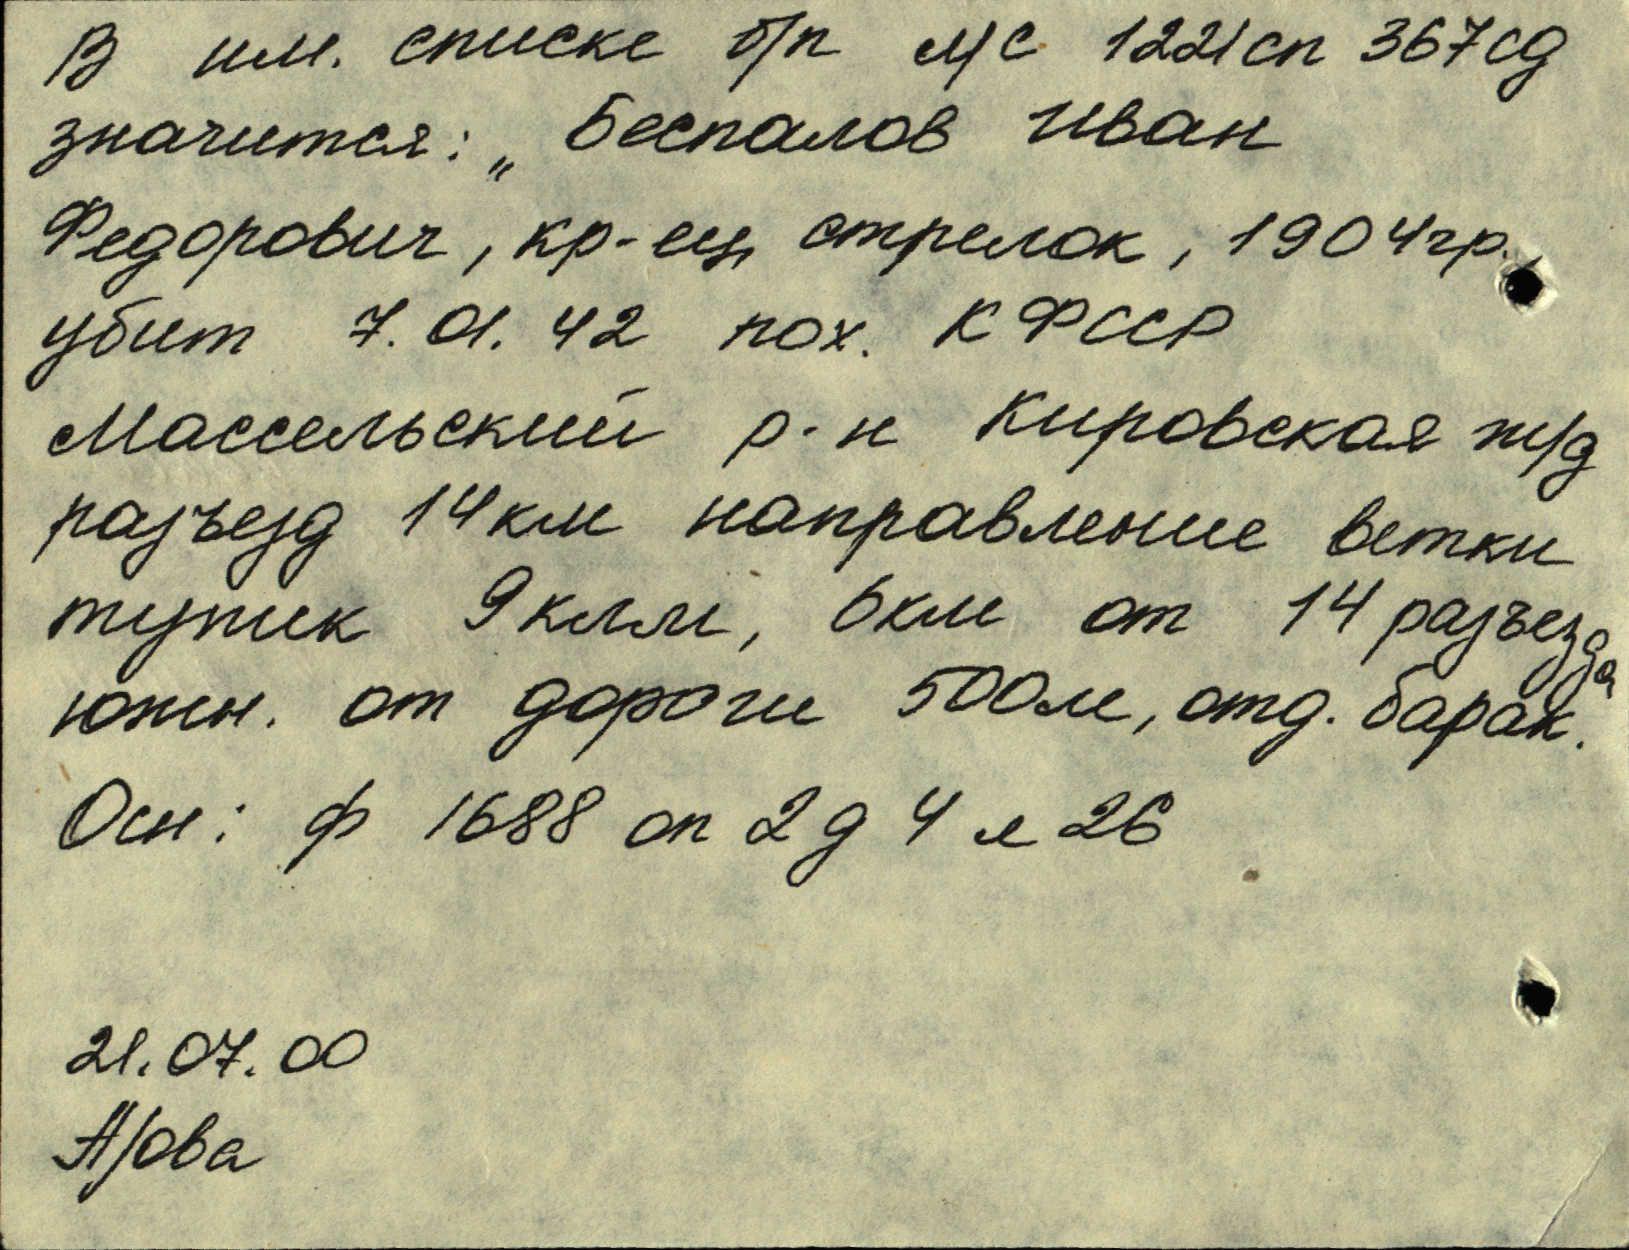 В им. списке б/п м/с 1221сп 367сд
значится: „Беспалов Иван
Федорович, кр-ец, стрелок, 1904гр.,
убит 7.01.42 пох. КФССР
Массельский р-н Кировская ж/д
разъезд 14км направление ветки
тупик 9клм, 6км от 14 разъезда
южн. от дороги 500м, отд. барак.
Осн: ф 1688 оп 2 д 4 л 26
21.07.00